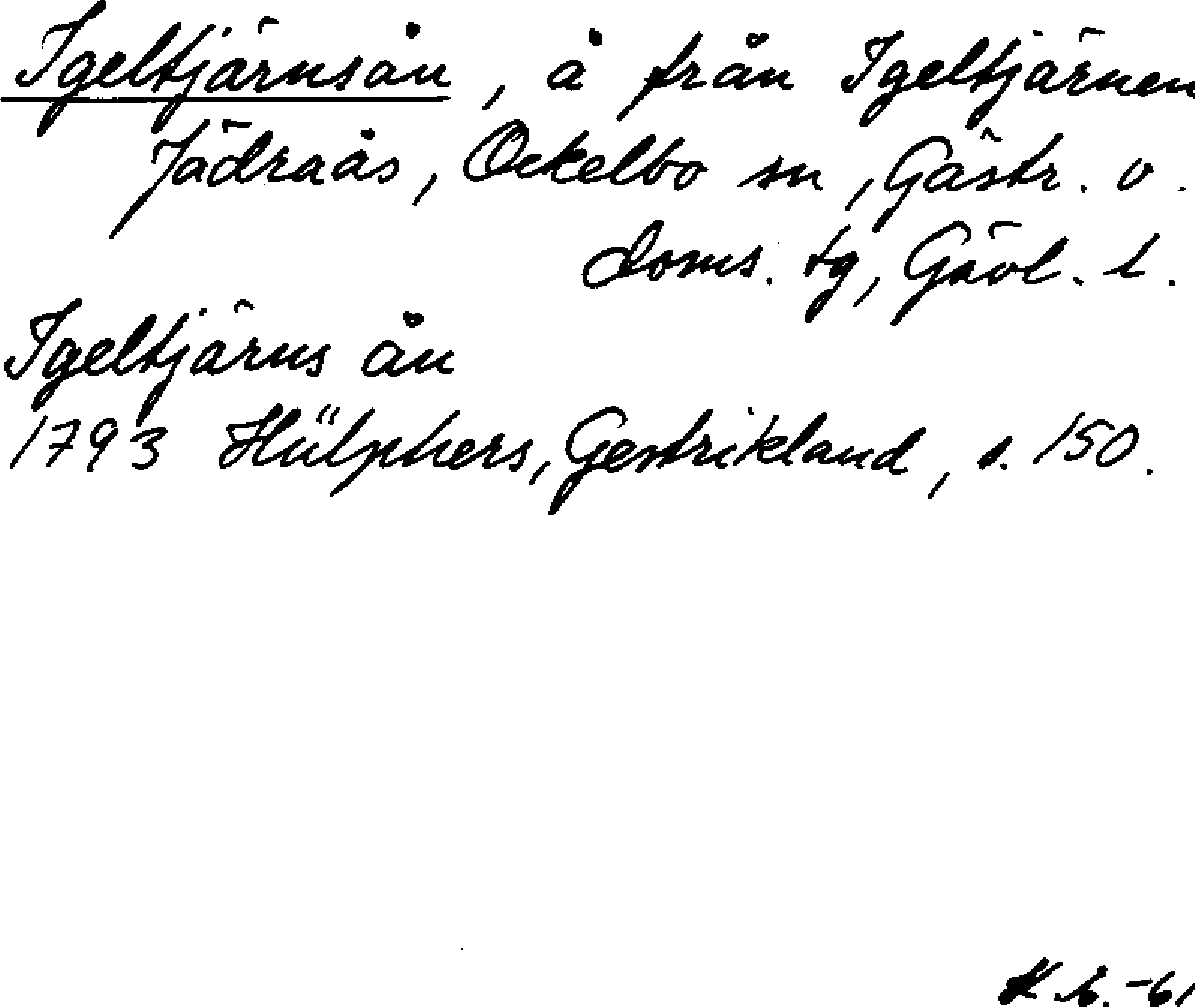 Igeltjärnsån, å från Igeltjärnen
Jädraås, Ockelbo sn, Gästr. v.
doms. tg, Gävl. l.
Igeltjärns ån
1793 Hülphers, Gestrikland, s. 150.
-61